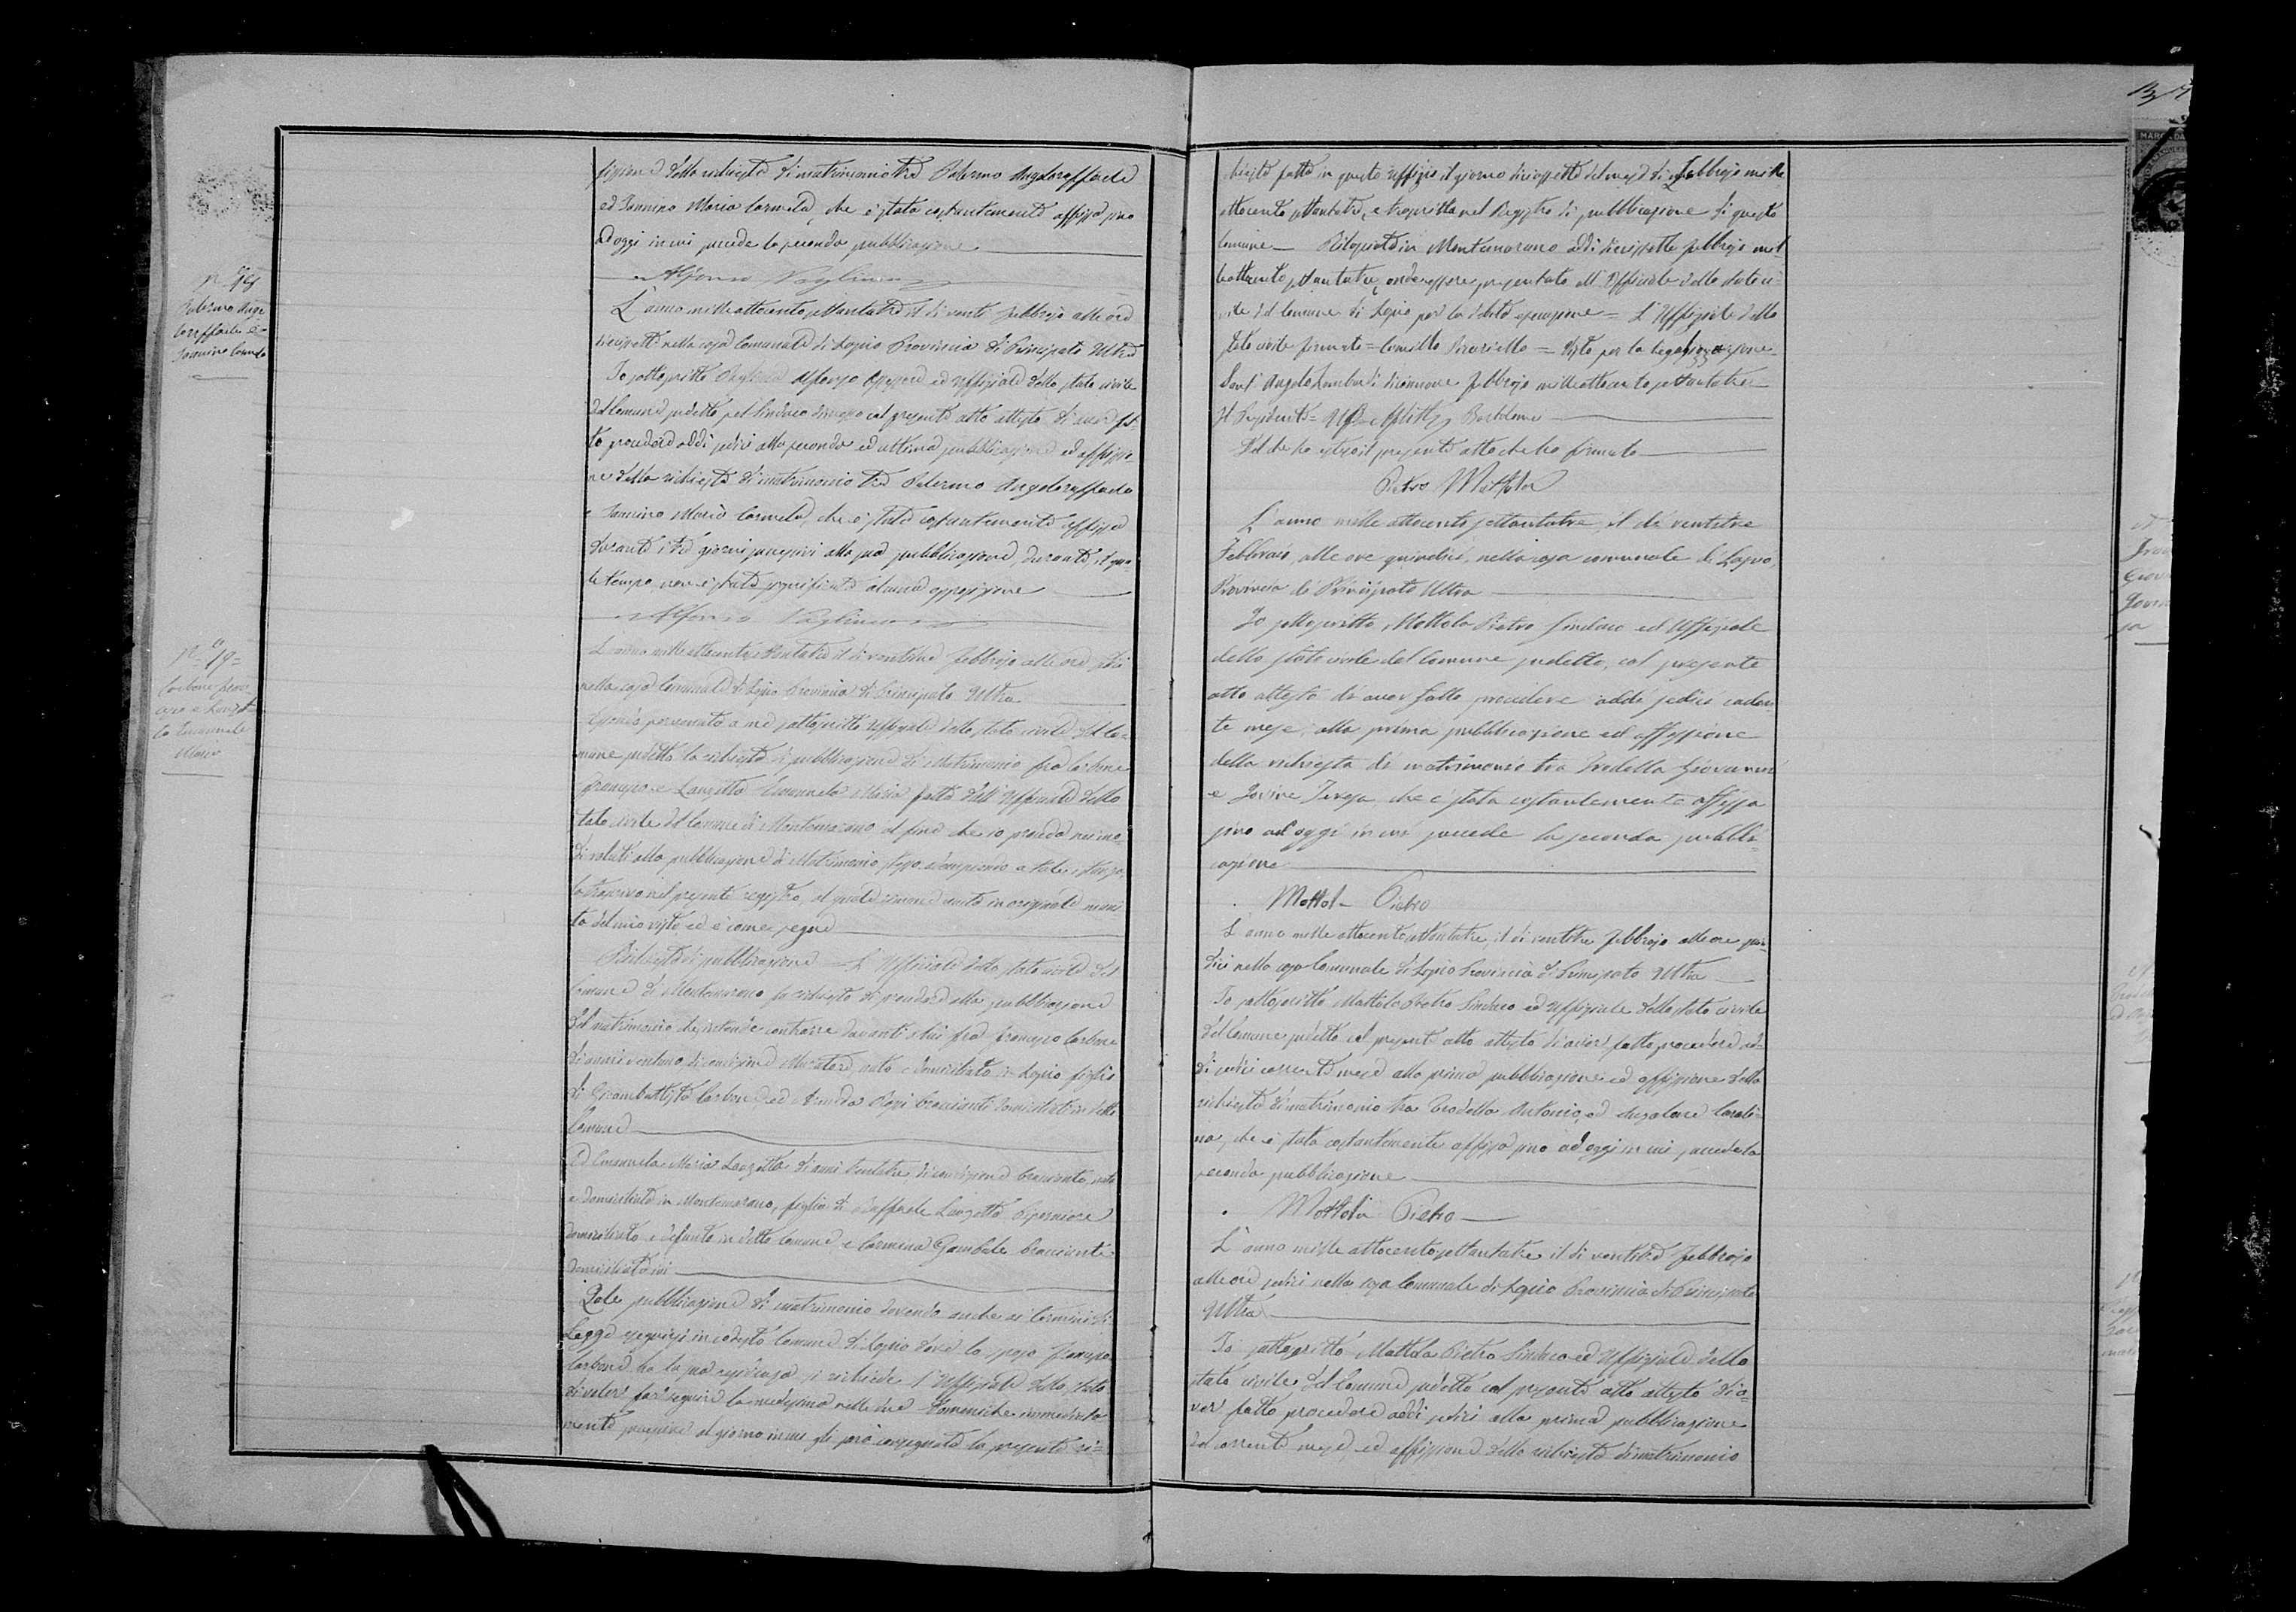 fissione della richiesta di matrimonio tra Palermo Angeloraffaele
ed Iannino Maria Carmela, che è stata costantemente affissa sino
ad oggi in cui succede la seconda pubblicazione
Alfonso
L'anno milleottocentosettantatre il dì venti Febbrajo alle ore
diecisette nella casa Comunale di Lapio Provincia di Principato Ultra
Io sottoscritto Alfonso Assessore ed Uffiziale dello stato civile
del Comune sudetto pel Sindaco col presente atto attesto di aver fat-
to procedere addì sedici alla seconda ed ultima pubblicazione ed affissio-
ne della richiesta di matrimonio tra Palermo Angeloraffaele
e Iannino Maria Carmela, che è stata costantemente affissa
durante i tre giorni successivi alla sua pubblicazione, durante il qua-
le tempo non è stata significata alcuna opposizione
Alfonso
N° 18
Palermo Ange
loraffaele e
Iannino Carmela
N° 19
Carbone Fran
cesco e Lanzet
ta Emanuela
Maria
L'anno milleottocentosettantatre il dì ventuno Febbrajo alle ore sedici
nella casa Comunale di Lapio Provincia di Principato Ultra
Essendo pervenuta a me sottoscritto Uffiziale dello stato civile del Co-
mune sudetto la richiesta di pubblicazione di Matrimonio fra Carbone
Francesco e Lanzetta Emanuela Maria fatta dall'Uffiziale dello
stato civile del Comune di Montemarano al fine che io proceda nei modi
di alla pubblicazione di Matrimonio
la trascrivo nel presente registro, il quale rimane unita in originale muni-
ta del mio visto ed è come segue
Richiesta di pubblicazione L'Uffiziale dello stato civile del
Comune di Montemarano fa richiesta di procedere alla pubblicazione
del matrimonio che intende contrarre davanti a lui fra Francesco Carbone
di anni ventuno di condizione Muratore, nato e domiciliato in Lapio figlio
di Giambattista Carbone, ed braccianti domiciliati in detto
Comune
Ed Emanuela Maria Lanzetta di anni ventitre di condizione bracciante, nata
e domiciliata in Montemarano, figlia di Raffaele Lanzetta
domiciliato e defunto in detto Comune, e Carmina Gambale bracciante
domiciliata ivi
Tale pubblicazione di matrimonio dovendo anche ai termini di
Legge eseguirsi in codesto Comune di Lapio dove lo sposo Francesco
Carbone ha la sua residenza si richiede l'Uffiziale dello stato
di voler far seguire la medesima nelle due Domeniche immediata-
mente successive al giorno in cui gli sarà consegnata la presente ri=
chiesta fatta in questo Uffizio il giorno diciassette del mese di Febbrajo mille
ottocento settantatre, e trascritta nel Registro di pubblicazione di questo
Comune Rilasciata in Montemarano addì diecisette Febbrajo mil-
leottocento settantatre, onde essere presentata all'Uffiziale dello stato ci-
vile del Comune di Lapio per la debita esecuzione = L'Uffiziale dello
stato civile firmato = = Visto per la legalizzazione
Sant'Angelo Lombardi diecinove Febbrajo milleottocentosettantatre
Il Presidente =
Del che ho esteso il presente atto che ho firmato
Pietro Mottola
L'anno mille ottocento settantatre, il dì ventitre
Febbraio, alle ore quindici, nella casa comunale di Lapio
Provincia di Principato Ultra
Io sottoscritto Mottola Pietro Sindaco ed Uffiziale
dello stato civile del Comune sudetto, col presente
atto attesto di aver fatto procedere addì sedici caden
te mese, alla prima pubblicazione ed affissione
della richiesta di matrimonio tra Trodella Giovanni
e Iovine Teresa, che è stata costantemente affissa
sino ad oggi in cui succede la seconda pubbli-
cazione
Mottola Pietro
L'anno mille ottocentosettantatre, il dì ventitre Febbrajo alle ore quin-
dici nella casa Comunale di Lapio Provincia di Principato Ultra
Io sottoscritto Mottola Pietro Sindaco ed Uffiziale dello stato civile
del Comune sudetto col presente atto attesto di aver fatto procedere ad-
dì sedici corrente mese alla prima pubblicazione ed affissione della
richiesta di matrimonio tra Trodella Antonio, ed
che è stata costantemente affissa sino ad oggi in cui succede la
seconda pubblicazione
Mottola Pietro
L'anno mille ottocentosettantatre il dì ventitre Febbrajo
alle ore sedici nella casa Comunale di Lapio Provincia di Principato
Ultra
Io sottoscritto Mottola Pietro Sindaco ed Uffiziale dello
stato civile del Comune sudetto col presente atto attesto di a=
ver fatto procedere addì sedici alla prima pubblicazione
del corrente mese, ed affissione della richiesta di matrimonio